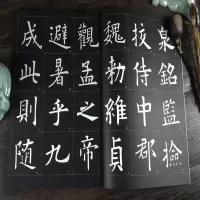 泉銘監撿
挍侍中郡
魏勅維貞
觀孟之帝
避暑乎九
成此則随